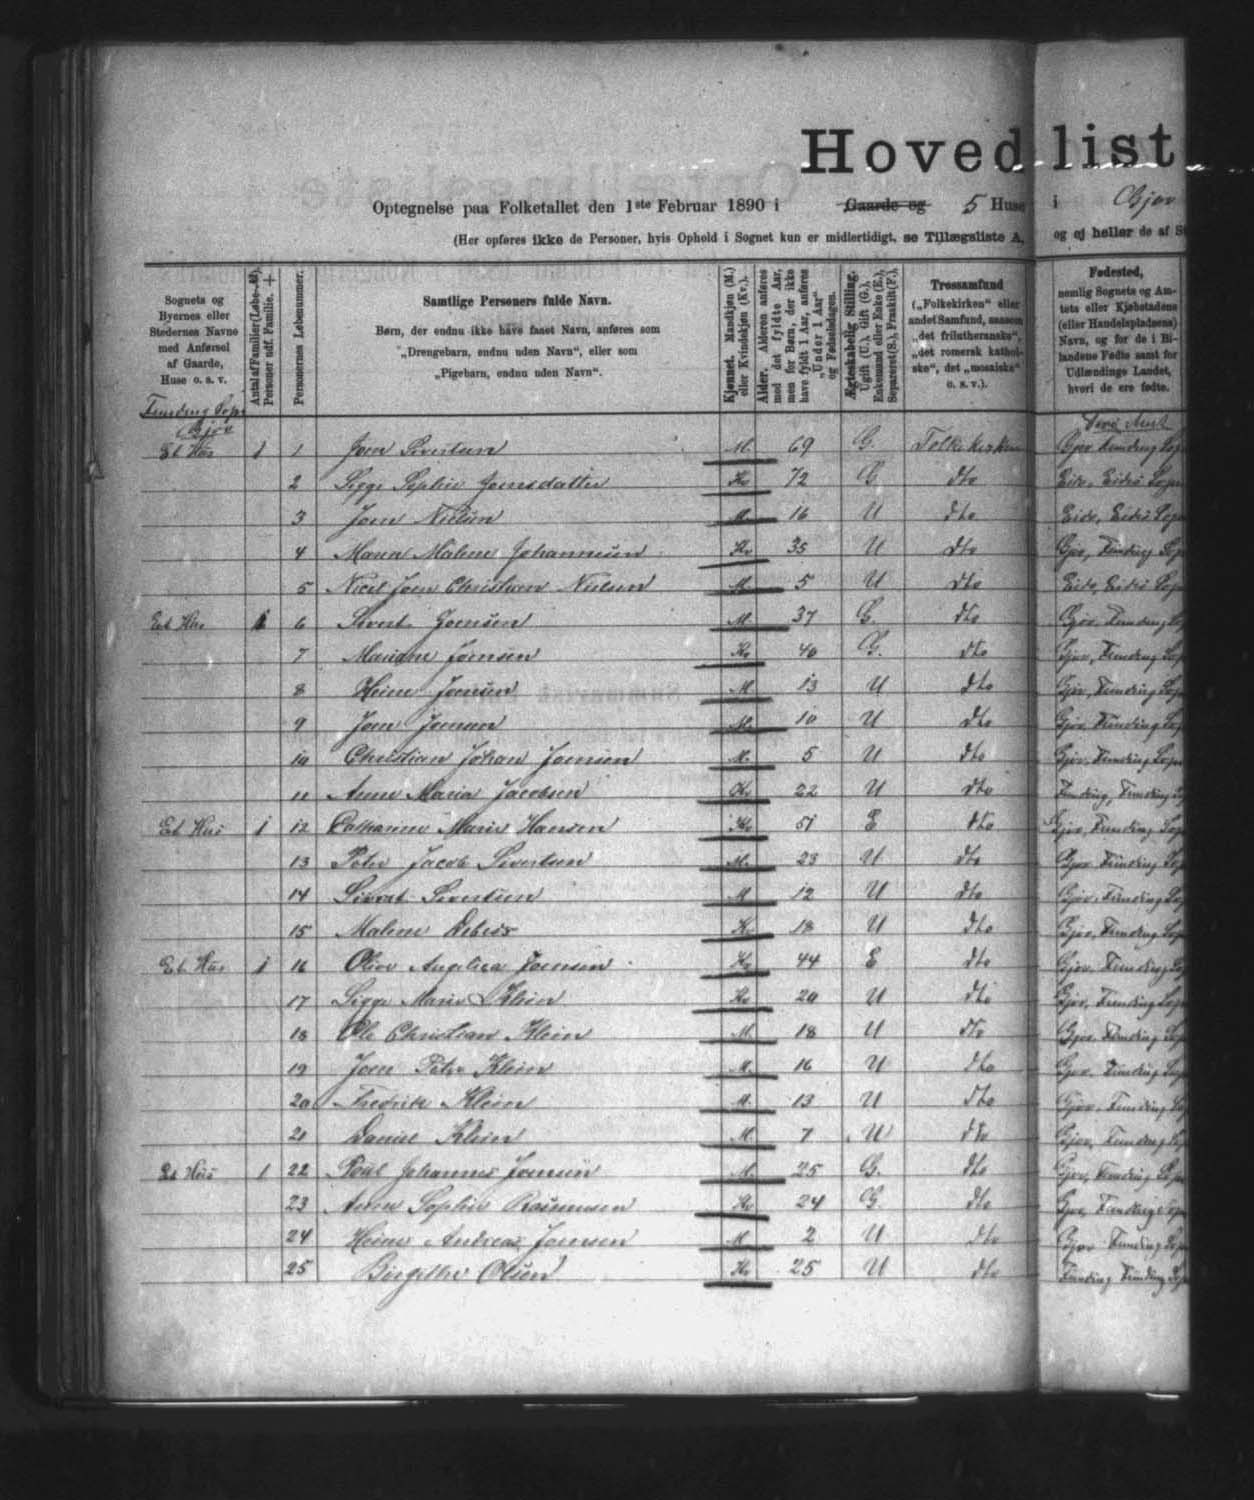 Hovedlist
Optegnelse paa Folketallet den 1ste Februar 1890 i Gaarde og 5 Huse i Gjov
(Her opføres ikke de Personer, hvis Ophold i Sognet kun er midlertidigt, se Tillægsliste A, og ej heller de af St
Sognets og Byernes eller Stedernes Navne med Anførsel af Gaarde, Huse o. s. v.
Antal af Familier Personer udf. Familie.
Personernes Løbenummer.
Samtlige Personers fulde Navn.
Børn, der endnu ikke have faaet Navn, anføres som
„Drengebarn, endnu uden Navn“, eller som
„Pigebarn, endnu uden Navn“.
Kjønnet. Mandkjøn (M.) eller Kvindekjøn (Kv.).
Alder. Alderen anføres med det fyldte Aar, men for Børn, der ikke have fyldt 1 Aar, anføres „Under 1 Aar“ og Fødselsdagen.
Ægteskabelig Stilling. Ugift (U.), Gift (G.), Enkemand eller Enke (E.), Separeret (S.), Fraskilt (F.).
Trossamfund („Folkekirken“ eller andet Samfund, saasom „det frilutheranske“, „det romersk katholske“, det „mosaiske“ o. s. v.).
Fødested, nemlig Sognets og Amtets eller Kjøbstadens (eller Handelspladsens) Navn, og for de i Bilandene Fødte samt for Udlændinge Landet, hvori de ere fødte.
Funding Sogn
Gjov
Et Hus 1 1 Joen Sivertsen M. 69 G. Folkekirken Gjov Funding Sog
2 Sigge Sophie Joensdatter Kv 72 G dto Eide, Eides Sogn
3 Joen Nielsen M. 16 U dto Eide, Eides Sogn
4 Maria Malene Johannesen Kv 35 U dto Gjov, Funding Sog
5 Niels Joen Christian Nielsen M. 5 U dto Eide, Eides Sogn
Et Hus 1 6 Sivert Joensen M. 37 G. dto Gjov, Funding Sog
7 Mariane Joensen Kv 40 G. dto Gjov, Funding Sog
8 Heine Joensen M 13 U dto Gjov, Funding Sog
9 Joen Joensen M. 10 U dto Gjov, Funding Sog
10 Christian Johan Joensen M. 5 U dto Gjov, Funding Sog
11 Anne Maria Jacobsen Kv 22 U dto Funding, Funding S
Et Hus 1 12 Cathanne Marie Hansen Kv 51 E dto Gjov, Funding Sog
13 Peter Jacob Sivertsen M. 23 U dto Gjov, Funding Sog
14 Sivert Sivertsen M 12 U dto Gjov, Funding Sog
15 Malene Debess Kv 18 U dto Gjov, Funding Sog
Et Hus 1 16 Olive Angelica Joensen Kv 44 E dto Gjov, Funding Sog
17 Sigga Marie Klein Kv 20 U dto Gjov, Funding Sog
18 Ole Christian Klein M. 18 U dto Gjov, Funding Sog
19 Joen Peter Klein M. 16 U dto Gjov, Funding Sog
20 Fredrik Klein M. 13 U dto Gjov, Funding Sog
21 Daniel Klein M. 7 U dto Gjov, Funding Sog
Et Hus 1 22 Poul Johannes Joensen M. 25 G. dto Gjov, Funding Sogn
23 Anne Sophie Rasmussen Kv 24 G dto Gjov, Funding Sogn
24 Heine Andreas Joensen M. 2 U dto Gjov Funding Sogn
25 Birgithe Olsen Kv 25 U dto Funding Funding Sogn